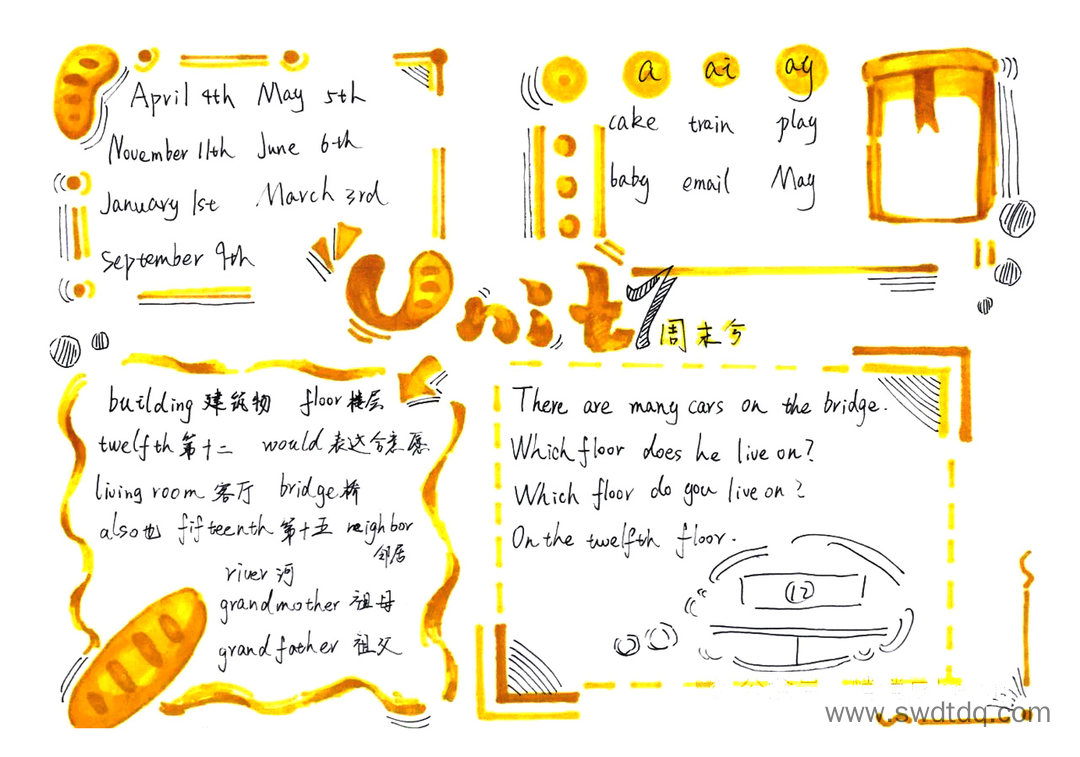 April 4th May 5th
November 11th June 6th
January 1st March 3rd
September 9th
a ai ay
cake train play
baby email May
Unit 7
周末兮
building 建筑物 floor 楼层
twelfth 第十二 would 表达会意愿
living room 客厅 bridge 桥
also 也 fifteenth 第十五 neighbor
邻居
river 河
grandmother 祖母
grandfather 祖父
There are many cars on the bridge.
Which floor does he live on?
Which floor do you live on?
On the twelfth floor.
12
www.swdtdq.com